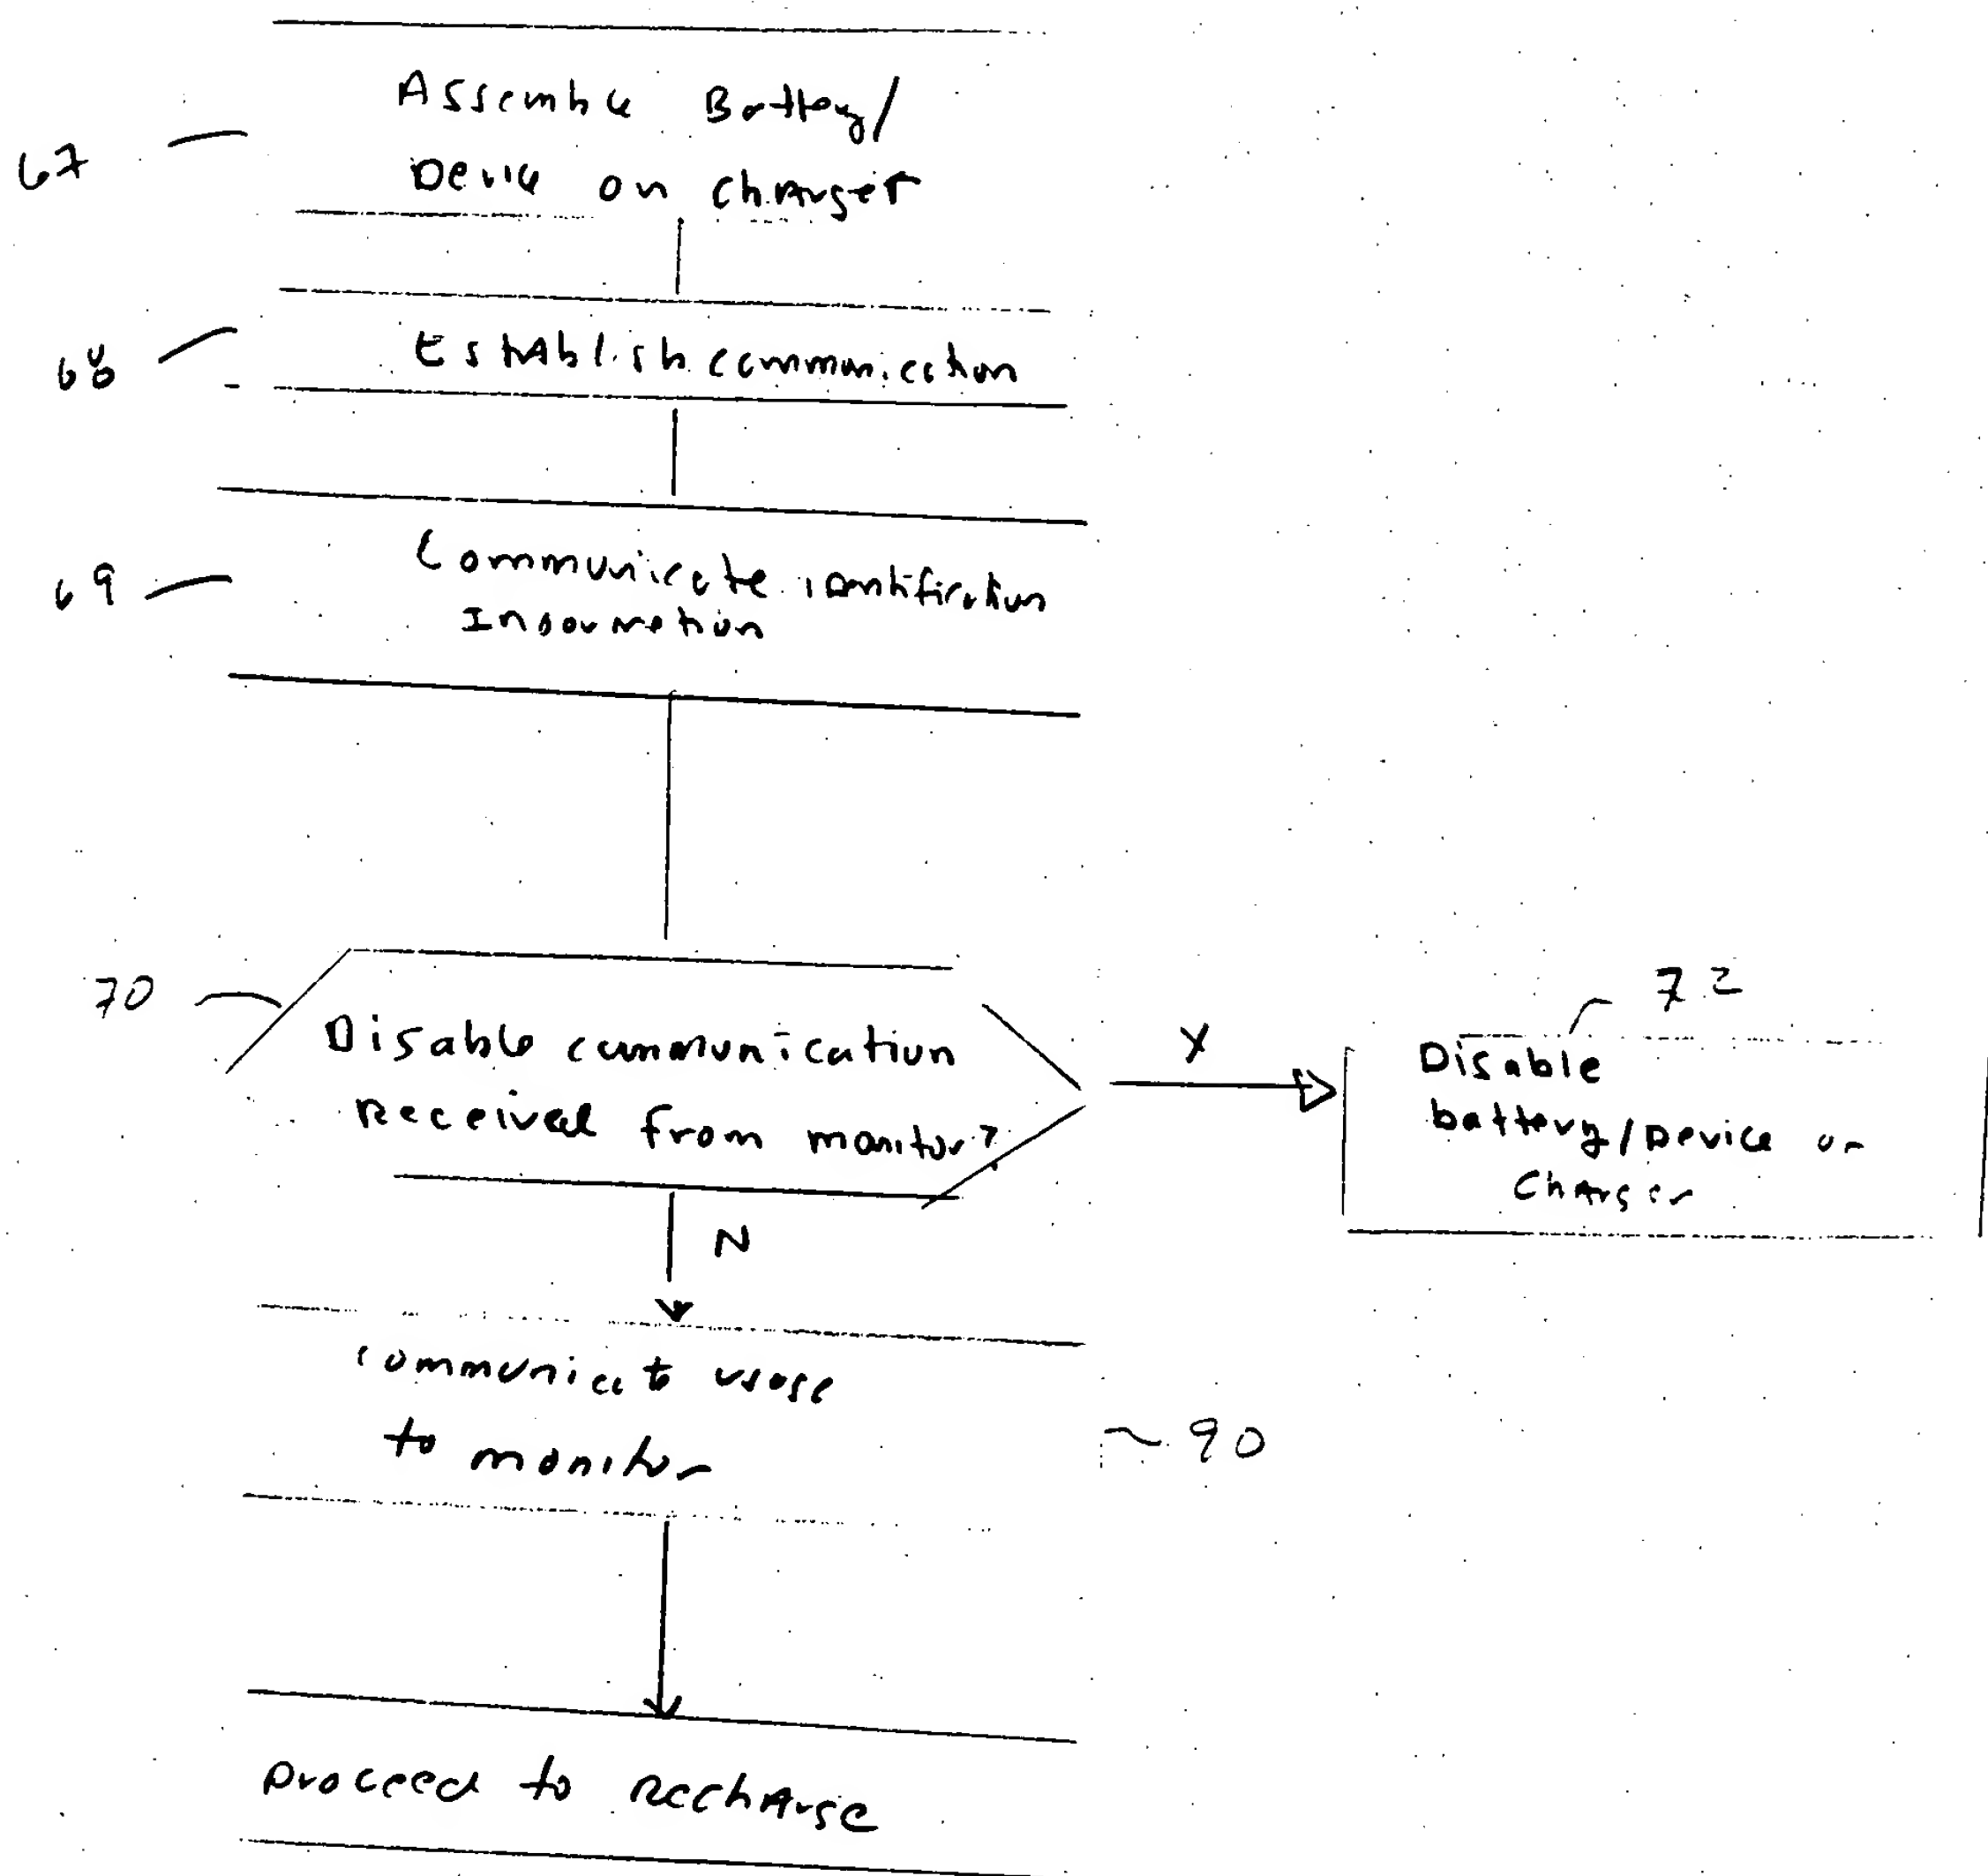 Assemble Battery/
67
Device on Charger
68
Establish communication
69
Communicate identification
Information
70
Disable communication
Received from monitor?
Y
72
Disable
battery/Device or
Charger
N
Communicate usage
to monitor
~90
Proceed to Recharge